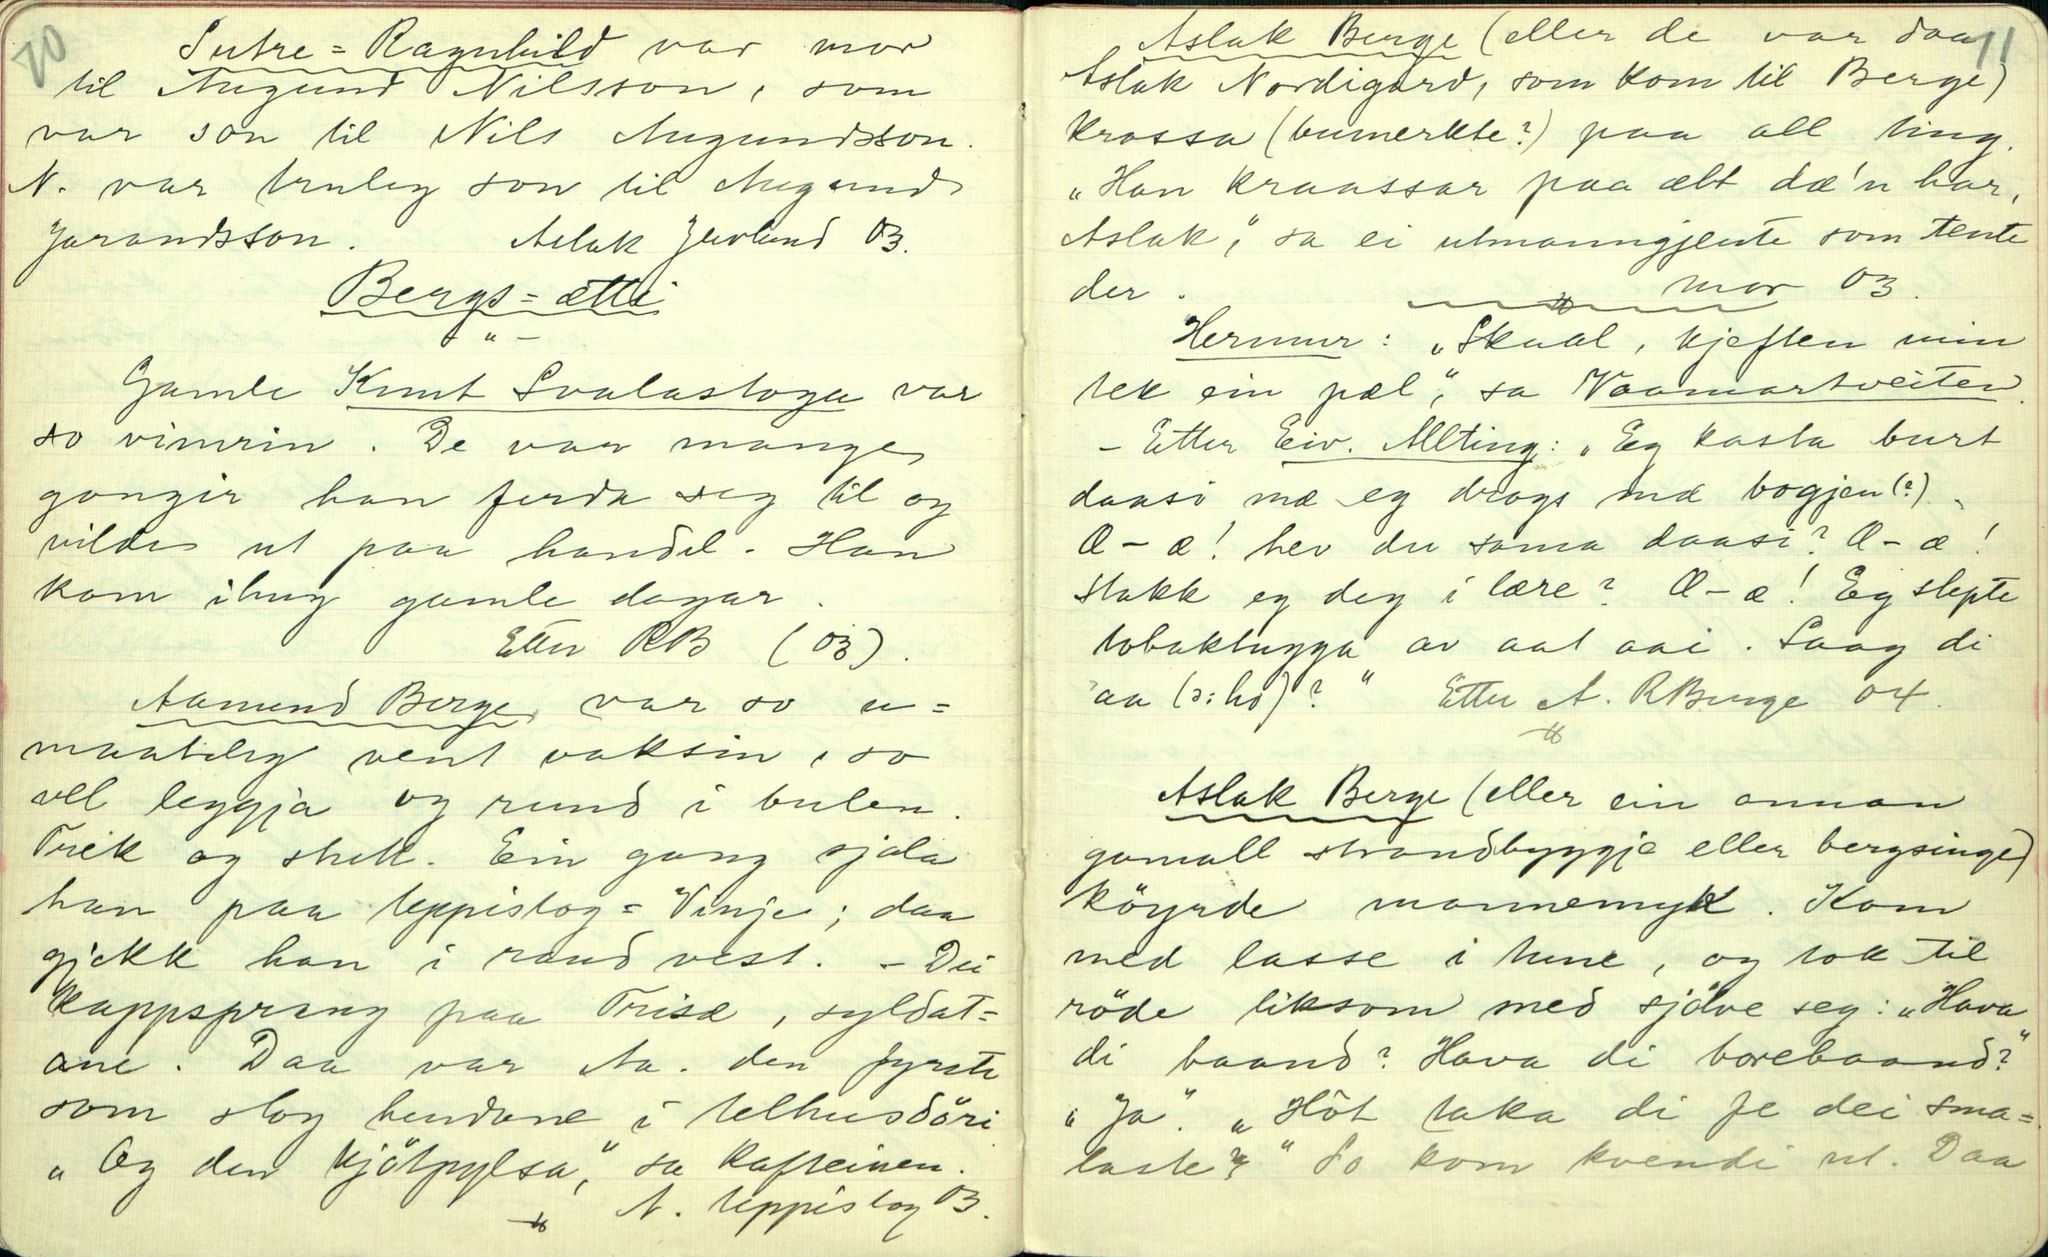 70
Sutre = Ragnhild var mor
til Augund Nilsson, som
var son til Nils Augundsson.
N. var truleg son til Augund
Jarandsson. Aslak Juvlund 03.
Bergs = ætti
- " -
Gamle Knut Svalastoga var
so vimrin. De var mange
gongir han ferda seg til og
vilde ut paa handel. Han
kom ihug gamle dagar.
Etter RB (03).
Aamund Berge var so u=
maateleg vent vaksin, so
vel leggja og rund i bulen.
Trik og stell. Ein gang sjala
han paa Uppistog = Vinje; daa
gjekk han i raud vest. - Dei
kappsprang paa Trisæ, syldat=
ane. Daa var Aa. den fyrste
som slog hendane i telhusdöri
„ Og den kjötpylsa," sa kafteinen.
N. Uppistog 03.
11
Aslak Berge (eller de var daa
Aslak Nordigard, som kom til Berge)
krossa (bumerkte?) paa all ting.
„Han kraassar paa ælt dæ'n har,
Aslak," sa ei utmanngjente som tente
der. mor 03.
Hermur: „Skaal, kjeften min
tek ein pæl", sa Vaamartveiten.
- Etter Eiv. Mlting: „Eg kasta burt
daasi mæ eg drogs mæ bogjen (?).
Æ - æ! hev du soma daasi? Æ - æ!
stakk eg deg i lære? Æ - æ! Eg slepte
tobaktugga av aat aai. Saag di
aa (ɔ: ho)?" Etter A. R Berge 04.
Aslak Berge (eller ein annan
gamall strandbyggje eller bergsinge)
köyrde mannemykk. Kom
med lasse i tune, og tok til
röde liksom med sjölve seg: „Hava
di baand? Hava di borebaand?"
„ Ja". „ Höt taka di fe dei sma=
laste?" So kom kvendi ut. Daa